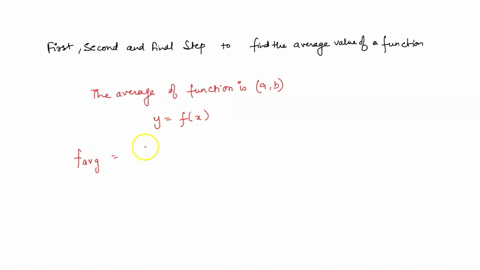 First, Second and Final Step to find the average value of a function
The average of function is (a, b)
y = f(x)
favg =